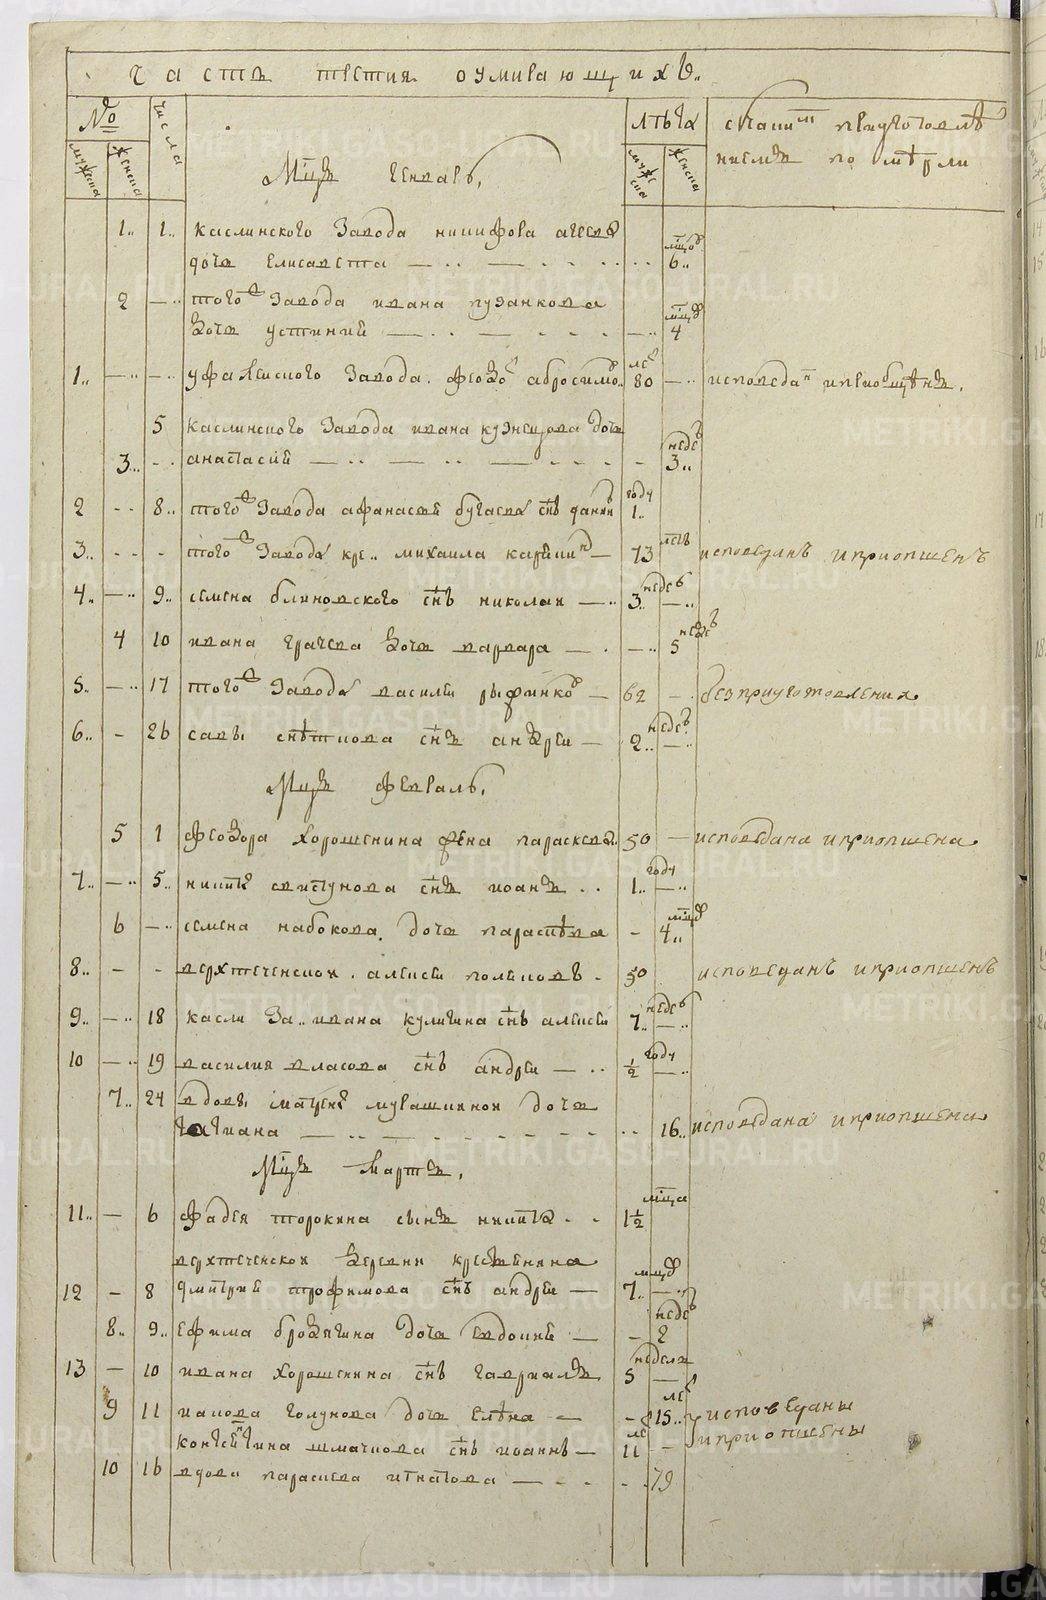 часть третия оумирающихъ..
№ числа лѣта скаким приуготовлѣ
мужеска женска муже ска женска ниемъ по мѣрли
Мцъ Генварь,
1.. 1.. каслинского Завода никифора агеева мцов
дочь Елисавета — .. — . . . .. 6..
2 — .. того Завода ивана пузанкова мцов
дочь устиний — . . — . . . — .. 4
1.. — .. — .. уфалеиского Завода. феодо абросимо.. ле 80 — .. исповеда и приобщѣнъ.
5 каслинского Завода ивана кузнецова дочь
3... - . анастасий — .. — .. — . . . - недѣ 3..
2 - - 8.. того Завода афанасий бугаева снъ данил году 1..
3.. - - - того Завода кре.. михаила карпин — 73 леть исповеданъ и приопшенъ
4.. — .. 9.. семена блиновского снъ николаи — .. 3.. недѣ — ..
4 10 ивана грачева дочь варвара — . — .. недѣ 5
5.. — .. 17 того Завода василеи — 62 — . без приуготовления
6.. - 26 савы снъ андреи — 2.. недѣ — ..
Мцъ февраль,
5 1 феодора хорошенина жена параскева 50 — исповедана и приопшена
7.. — .. 5.. никиты свистунова снъ иоанъ . . 1.. году — ..
6 — .. семена набокова дочь параскѣва - мцов 4..
8.. - - верхтеченскои. алексеи поленовъ - 50 исповеданъ и приопшенъ
9.. — .. 18 касли За.. ивана куличина снъ алексеи 7.. недѣ — ..
10 — .. 19 василия власова снъ андреи — .. 1/2 году — ..
7.. 24 вдовы мурашкинои дочь
татиана — .. — . — - - - - - .. 16.. исповедана и приопшена
Мцъ Мартъ,
11.. — 6 фадея торокина сынъ никита . . 1 1/2 мца
верхтеченскои деревни крестьянина
12 - 8 дмитрий трофимова снъ андреи — 7.. мцов — ..
8.. 9.. ефима бродягина дочь евдокий — - недѣ 2
13 — 10 ивана хорошенина снъ гавриилъ 5 недели —
9 11 иакова голунова дочь елѣна — - ле 15.. исповеданы
шмакова снъ иоаннъ — ле 11 - - и приопшены
10 16 вдова параскева игнатова — - - - . 79